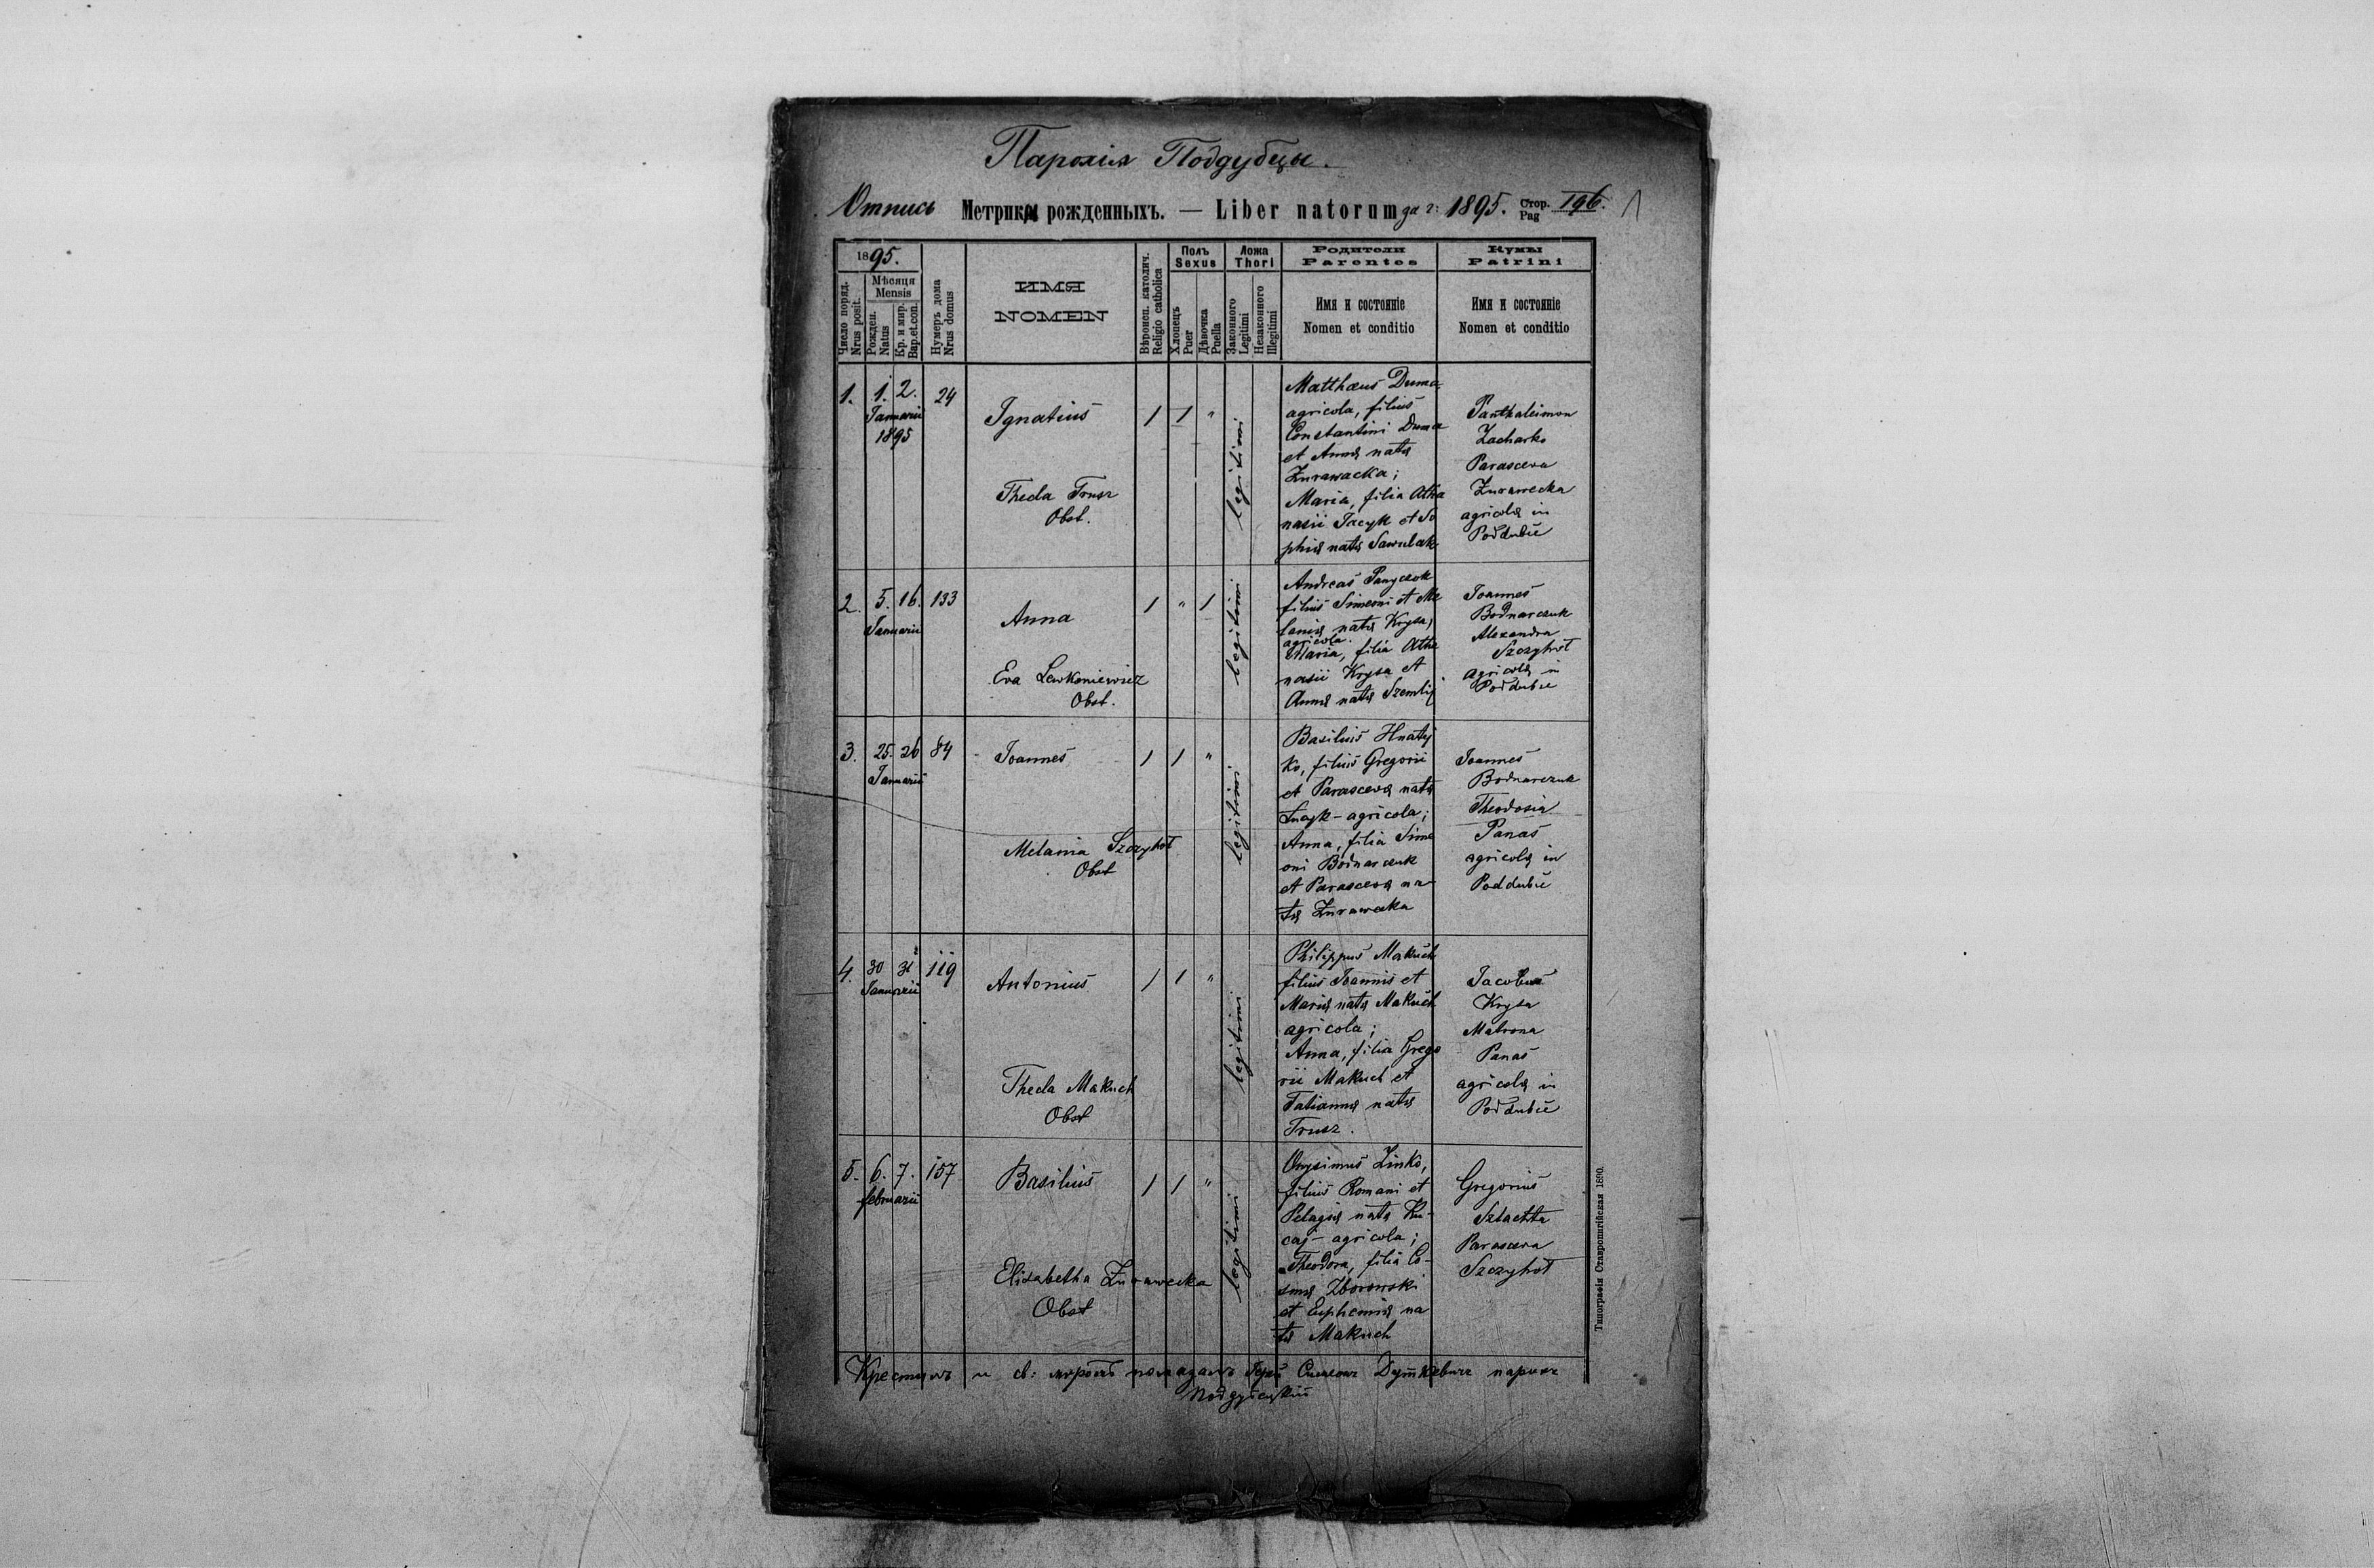 Парохія Поддубцы.
Отпись Метрики рожденныхъ. — Liber natorum за г: 1895. Стор. Pag 196. 1
1895.
Число поряд. Nrus posit.
Мѣсяця Mensis
Рожден. Natus
Кр. и мир. Bap.et.con.
Нумеръ дома Nrus domus
ИМЯ
NOMEN
Вѣроисп. католич. Religio catholica
Полъ Sexus
Хлопецъ Puer
Дѣвочка Puella
Ложа Thori
Законного Legitimi
Незаконного Illegitimi
Родители Parentes
Имя и состояніе
Nomen et conditio
Кумы Patrini
Имя и состояніе
Nomen et conditio
1. 1. 2. 24
Januarii
1895
Ignatius 1 1 "
Thecla Trusz
Obst.
legitimi
Matthaeus Duma
agricola, filius
Constantini Duma
et Annae natae
Zurawacka;
Maria, filia Atha
nasii Jacyk et So
phiae natae Sawulak
Panthaleimon
Zacharko
Parasceva
Zurawecka
agricolae in
Poddubce
2. 5. 16. 133
Januarii
Anna 1 " 1
Eva Lewkoniewicz
Obst.
legitimi
Andreas Panyczok
filius Simeoni et Me
laniae natae Krysa,
agricola.
Maria, filia Atha
nasii Krysa et
Annae natae Szemlij
Joannes
Bodnarczuk
Alexandra
Szczyhot
agricolae in
Poddubce
3. 25. 26 84
Januarii
Joannes 1 1 "
Melania Szczyhot
Obst
legitimi
Basilius Hnaty
ko, filius Gregorii
et Parascevae natae
agricola;
Anna, filia Sime
oni Bodnarczuk
et Parascevae na-
tae Zurawecka
Joannes
Bodnarczuk
Theodosia
Panas
agricolae in
Poddubce
4. 30 31 119
Januarii
Antonius 1 1 "
Thecla Makuch
Obst
legitimi
Philippus Makuch
filius Joannis et
Mariae natae Makuch
agricola;
Anna, filia Grego
rii Makuch et
Tatiannae natae
Trusz.
Jacobus
Krysa
Matrona
Panas
agricolae in
Poddubce
5. 6. 7. 157
februarii
Basilius 1 1 "
Elisabetha Zurawecka
Obst
legitimi
Onysimus Zinko,
filius Romani et
Pelagiae natae Ku-
caj - agricola;
Theodora, filia Co-
smae Zborowski
et Euphemiae na
tae Makuch
Gregorius
Szlachta
Parasceva
Szczyhot
Крестилъ и св: Симеонъ Дуткевичъ парохъ
Поддубецкій
Типографія Ставропигійская 1890.